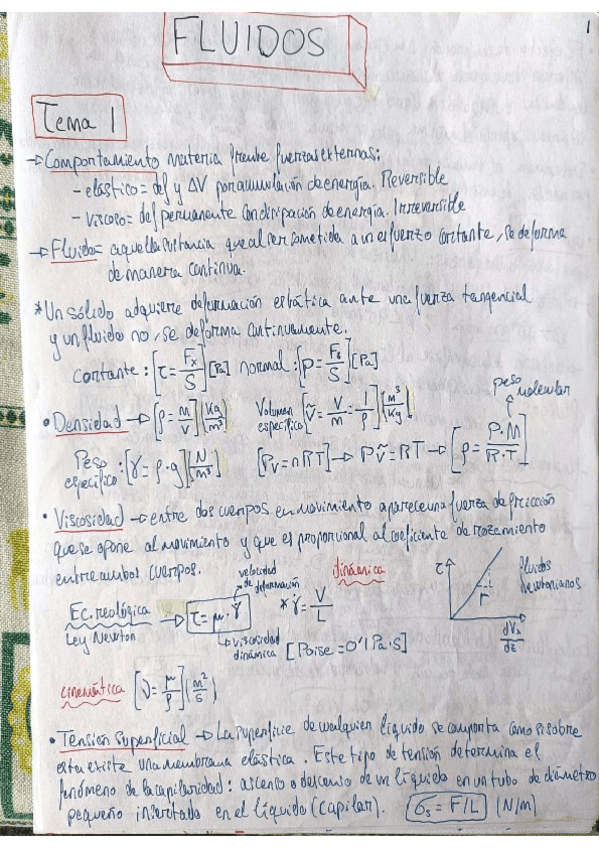 FLUIDOS
1
Tema 1
→ Comportamiento materia frente fuerzas externas:
- elástico = def y ΔV por acumulación de energía. Reversible
- viscoso = def permanente con disipación de energía. Irreversible
→ Fluido = aquella sustancia que al ser sometida a un esfuerzo cortante, se deforma
de manera continua.
* Un sólido adquiere deformación estática ante una fuerza tangencial
y un fluido no, se deforma continuamente.
cortante : [τ = Fx/S] [Pa] normal : [p = F/S] [Pa]
peso
molecular
• Densidad → [ρ = m/V] (Kg/m³) Volumen específico [ṽ = V/m = 1/ρ] (m³/Kg)
Peso específico : [γ = ρ·g] (N/m³) [Pv = nRT] → Pṽ = RT → [ρ = P·M/R·T]
• Viscosidad → entre dos cuerpos en movimiento aparece una fuerza de fricción
que se opone al movimiento y que es proporcional al coeficiente de rozamiento
entre ambos cuerpos.
dinámica
velocidad
de deformación
Ec. reológica
Ley Newton → τ = μ·γ̇ * γ̇ = V/L
viscosidad
dinámica [Poise = 0'1 Pa·s]
τ
fluidos
newtonianos
μ
cinemática [ν = μ/ρ] (m²/s)
• Tensión superficial → La superficie de cualquier líquido se comporta como si sobre
esta existe una membrana elástica. Este tipo de tensión determina el
fenómeno de la capilaridad: ascenso o descenso de un líquido en un tubo de diámetro
pequeño insertado en el líquido (capilar). σs = F/L (N/m)